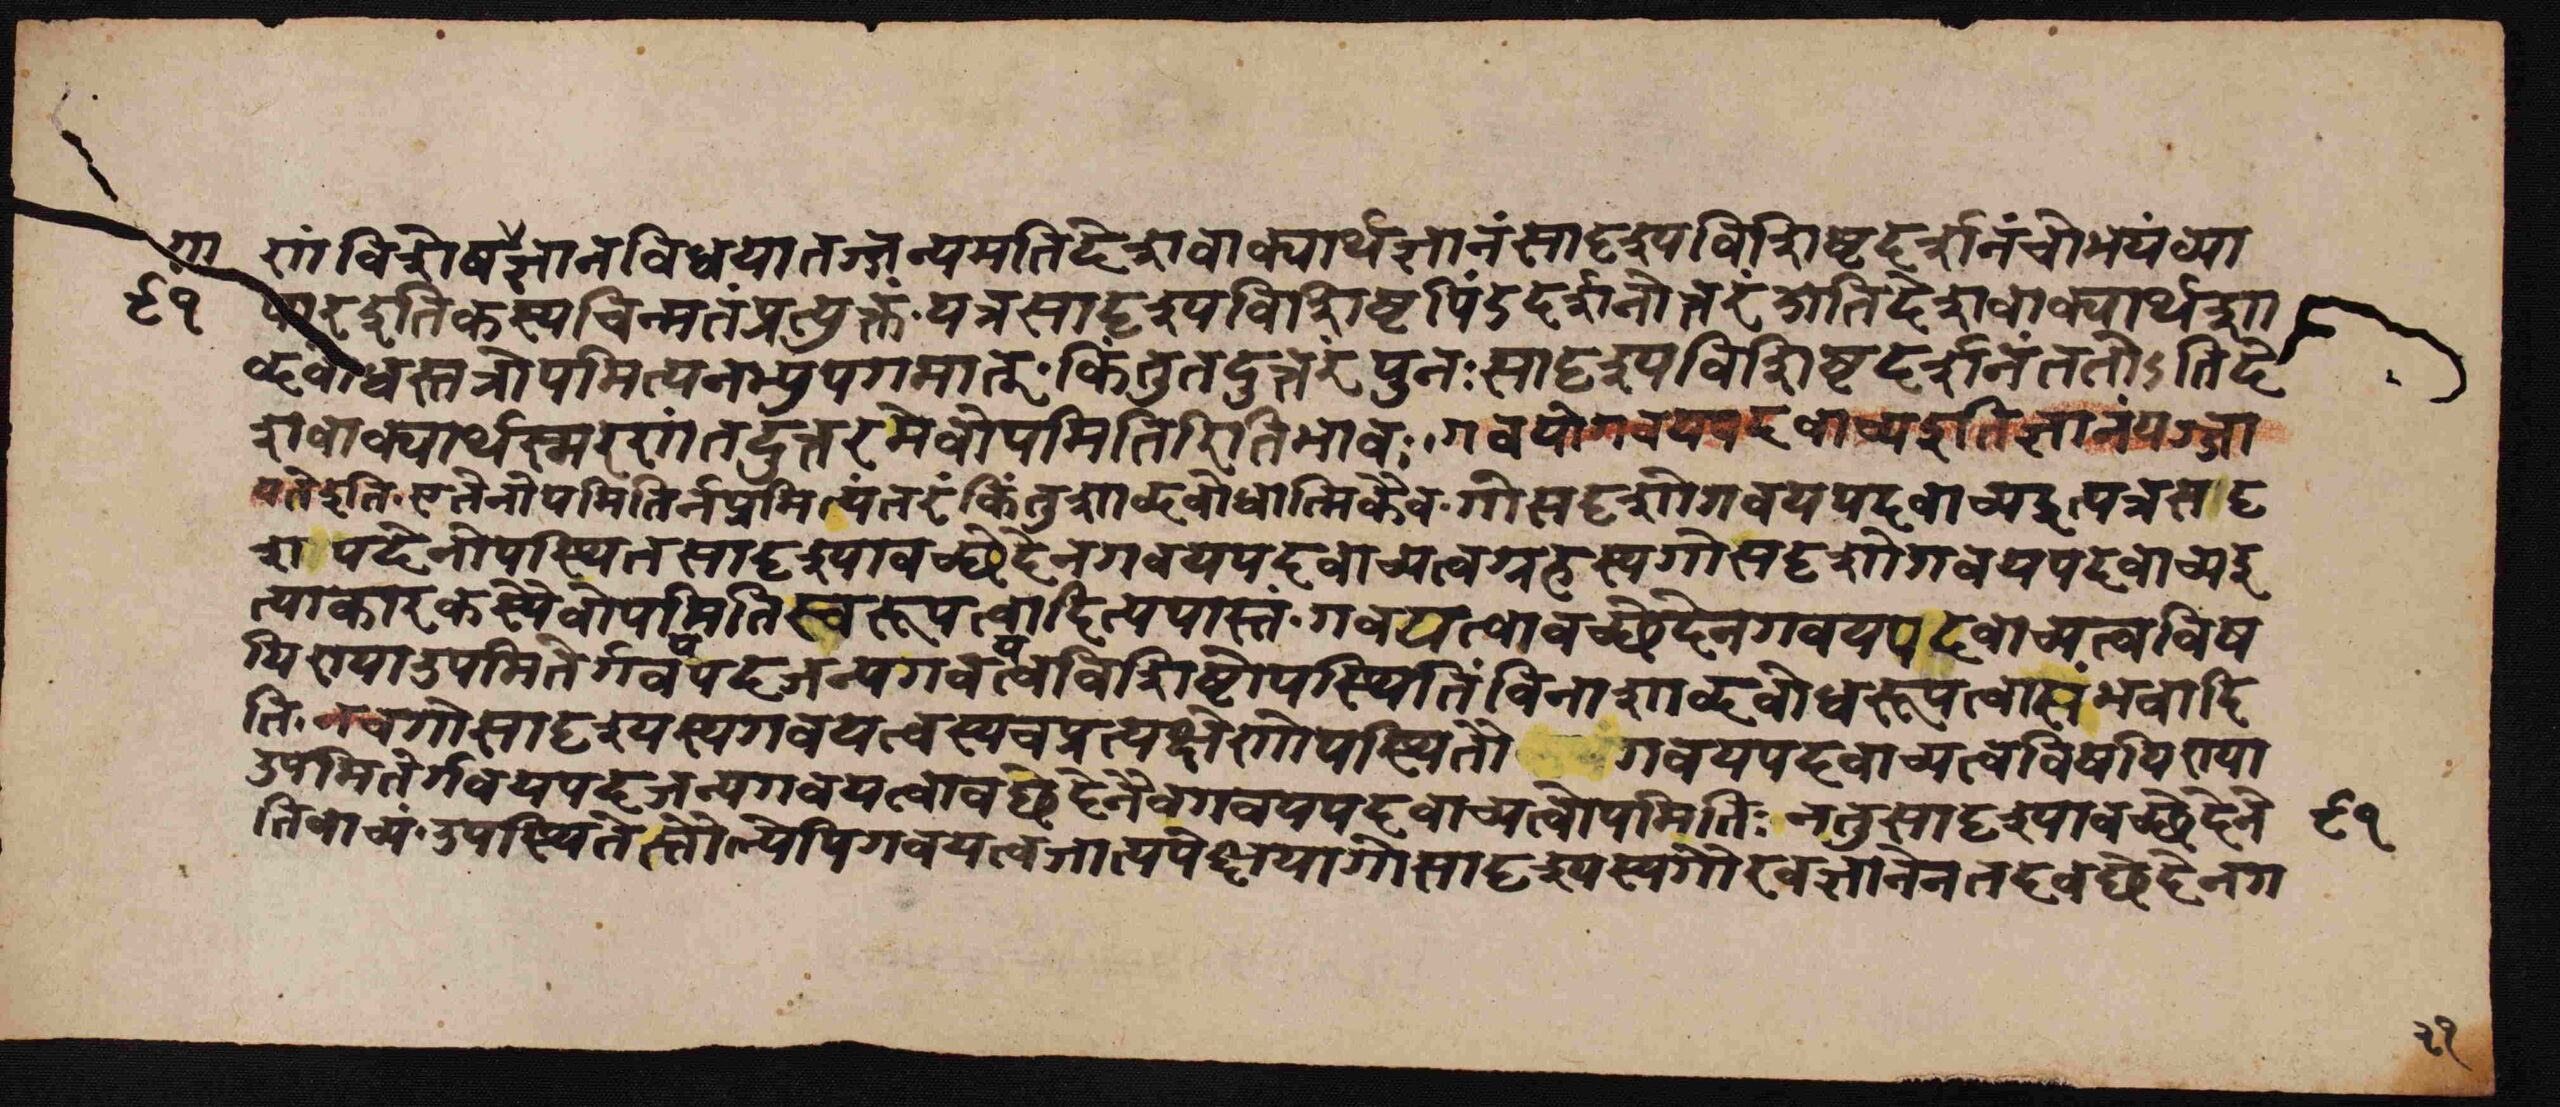 णा णं विशेषज्ञानविधया तज्जन्यमतिदेशवाक्यार्थज्ञानं सादृश्यविशिष्टदर्शनं चोभयं व्या
८१ पार इति कस्यचिन्मतं प्रत्युक्तं॰ यत्र सादृश्यविशिष्टपिंडदर्शनोत्तरं अतिदेशवाक्यार्थशा
ब्दबोधस्तत्रोपमित्यनभ्युपगमात्॰ किंतु तदुत्तरं पुनः सादृश्यविशिष्टदर्शनं ततोऽतिदे
शवाक्यार्थस्मरणं तदुत्तरमेवोपमितिरिति भावः॰ गवयो गवयपदवाच्य इति ज्ञानं यज्जा
यते इति॰ एतेनोपमितिर्नप्रमित्यंतरं किंतु शाब्दबोधात्मिकैव॰ गोसदृशो गवयपदवाच्य इत्यत्र सदृ
श पदेनोपस्थितसादृश्यावच्छेदेन गवयपदवाच्यत्वग्रहस्य गोसदृशो गवयपदवाच्य इ
त्याकारकस्यैवोपमितिस्वरूपत्वादित्यपास्तं॰ गवयत्वावच्छेदेन गवयपदवाच्यत्वविष
यिण्या उपमितेर्गवयपदजन्यगवयत्वविशिष्टोपस्थितिं विना शाब्दबोधरूपत्वासंभवादि
ति॰ न च गोसादृश्यस्य गवयत्वस्य च प्रत्यक्षेणोपस्थितौ गवयपदवाच्यत्वविषयिण्या
उपमितेर्गवयपदजन्यगवयत्वावछेदेनैव गवयपदवाच्यत्वोपमितिः न तु सादृश्यावच्छेदेने ८१
ति वाच्यं॰ उपस्थितेस्तौल्येपि गवयत्वजात्यपेक्षया गोसादृश्यस्य गौरवज्ञानेन तदवछेदेन ग
२१